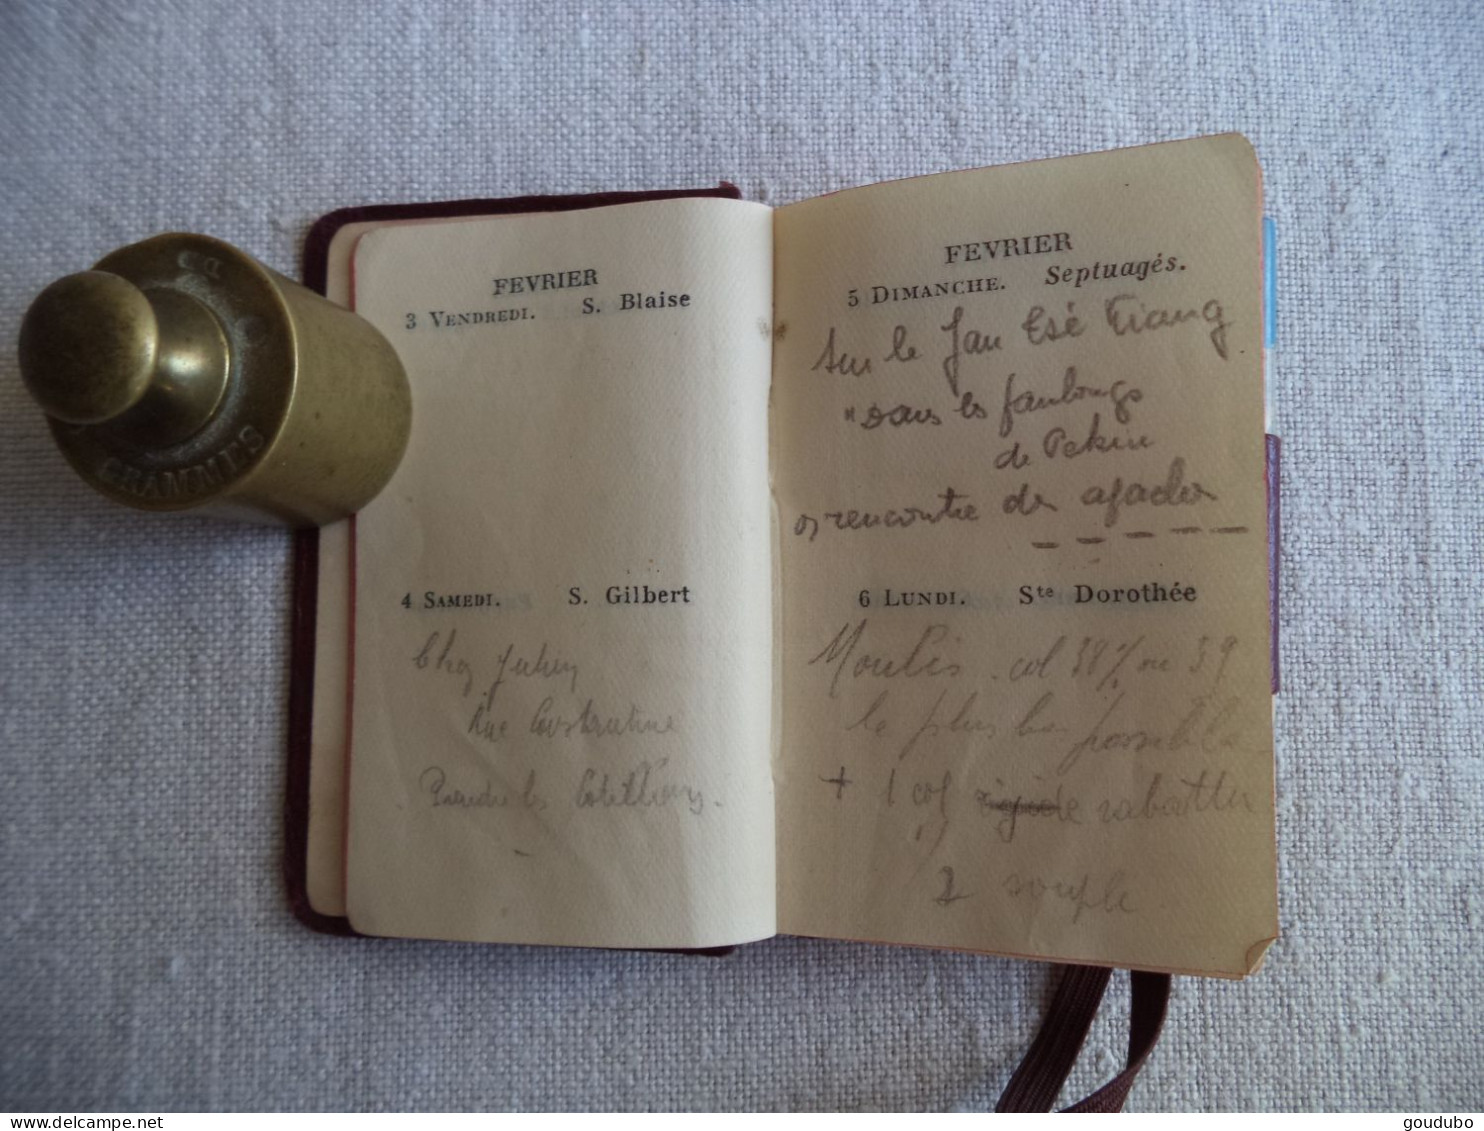 GRAMMES
FEVRIER
3 VENDREDI. S. Blaise
4 SAMEDI. S. Gilbert
Chez
Rue Constantine
Prendre les Cotillons.
FEVRIER
5 DIMANCHE. Septuagés.
Sur le Yan Tsé Kiang
"Dans les faubourgs
de Pékin
on rencontre des
6 LUNDI. Ste Dorothée
col 38 ½ ou 39
le plus bas possible
+ 1 col rigide rabattu
2 souple
delcampe.net
goudubo